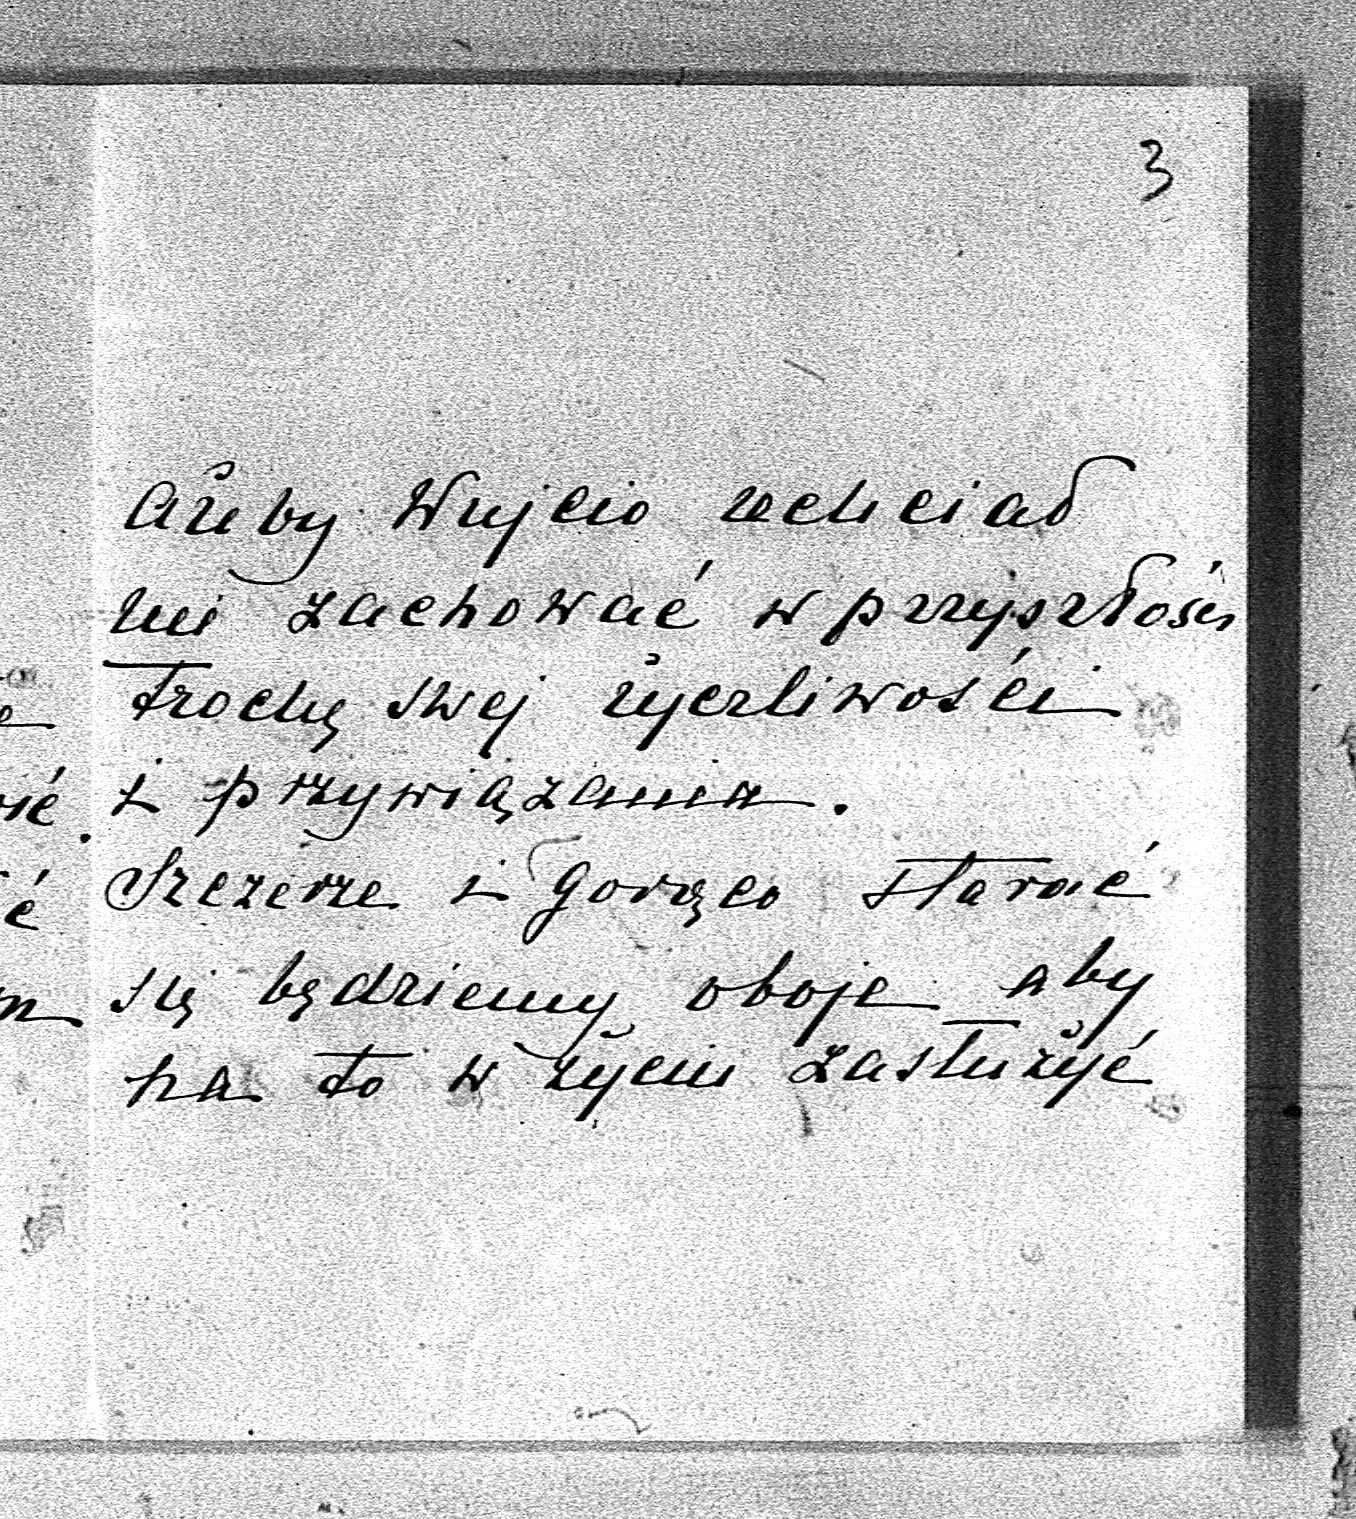 3
ażeby Wujcio zechciał
mi zachować w przyszłości
trochę swej życzliwości
i przywiązania.
Szczerze i gorąco starać
się będziemy oboje aby
na to w życiu zasłużyć